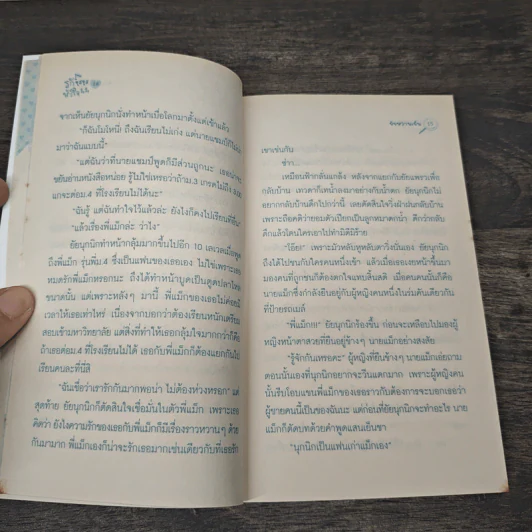 รักนี้
จากเห็นยัยนุกนิกนั่งทำหน้าเบื่อโลกมาตั้งแต่เช้าแล้ว
"ก็ฉันไม่ไหนี่! ถึงฉันเรียนไม่เก่ง แต่นายแชมป์ก็ไม่
มาว่าฉันแบบนี้"
"แต่ฉันว่าที่นายแชมป์พูดก็มีส่วนถูกนะ เธอน่าจะ
ขยันอ่านหนังสือหน่อย รู้ไม่ใช่เหรอว่าถ้าม.3 เกรดไม่ถึง
แกจะต่อม.4 ที่โรงเรียนไม่ได้นะ"
"ฉันรู้ แต่ฉันทำใจไว้แล้วล่ะ ยังไงก็คงไปเรียนที่อื่น"
"แล้วเรื่องพี่แม็กล่ะ ว่าไง"
ยัยนุกนิกทำหน้ากลุ้มมากขึ้นไปอีก 10 เลเวลเมื่อพูด
ถึงพี่แม็ก รุ่นพี่ม.4 ซึ่งเป็นแฟนของเธอเอง ไม่ใช่เพราะเธอ
หมดรักพี่แม็กหรอกนะ ถึงได้ทำหน้าบูดเป็นตูดปลาไหล
ขนาดนั้น แต่เพราะหลังๆ มานี้ พี่แม็กของเธอไม่ค่อยมี
เวลาให้เธอเท่าไหร่ เนื่องจากบอกว่าต้องเรียนหนักเตรียม
สอบเข้ามหาวิทยาลัย แต่สิ่งที่ทำให้เธอกลุ้มใจมากกว่าก็คือ
ถ้าเธอต่อม.4 ที่โรงเรียนไม่ได้ เธอกับพี่แม็กก็ต้องแยกกันไป
เรียนคนละที่นี่สิ
"ฉันเชื่อว่าเรารักกันมากพอน่า ไม่ต้องห่วงหรอก" แต่
สุดท้าย ยัยนุกนิกก็ตัดสินใจเชื่อมั่นในตัวพี่แม็ก เพราะเธอ
คิดว่า ยังไงความรักของเธอกับพี่แม็กก็มีเรื่องราวหวานๆ ด้วย
กันมามาก พี่แม็กเองก็น่าจะรักเธอมากเช่นเดียวกับที่เธอรัก
เขาเช่นกัน
ซ่า...
เหมือนฟ้ากลั่นแกล้ง หลังจากแยกกับยัยแพรวเพื่อ
กลับบ้าน เทวดาก็เทน้ำลงมาอย่างกับน้ำตก ยัยนุกนิกไม่
อยากกลับบ้านดึกไปกว่านี้ เลยตัดสินใจวิ่งฝ่าฝนกลับบ้าน
เพราะถือคติว่ายอมตัวเปียกเป็นลูกหมาตกน้ำ ดีกว่ากลับ
ดึกแล้วโดนใครเอาไปทำมิดีมิร้าย
"โอ๊ย!" เพราะมัวหลับหูหลับตาวิ่งนั่นเอง ยัยนุกนิก
ถึงได้ไปชนกับใครคนหนึ่งเข้า แล้วเมื่อเธอเงยหน้าขึ้นมา
มองคนที่ถูกชนก็ต้องตกใจแทบสิ้นสติ เมื่อคนคนนั้นก็คือ
นายแม็กซึ่งกำลังยืนอยู่กับผู้หญิงคนหนึ่งในร่มคันเดียวกัน
ที่ป้ายรถเมล์
"พี่แม็ก!!" ยัยนุกนิกร้องขึ้น ก่อนจะเหลือบไปมองผู้
หญิงหน้าตาสวยที่ยืนอยู่ข้างๆ นายแม็กอย่างสงสัย
"รู้จักกันเหรอคะ" ผู้หญิงที่ยืนข้างๆ นายแม็กเอ่ยถาม
ตอนนั้นเองที่นุกนิกอยากจะวีนแตกมาก เพราะผู้หญิงคน
นั้นรีบโอบแขนพี่แม็กของเธอราวกับต้องการจะบอกเธอว่า
ผู้ชายคนนี้เป็นของฉันนะ แต่ก่อนที่ยัยนุกนิกจะทำอะไร นาย
แม็กก็ตัดบทด้วยคำพูดแสนเย็นชา
"นุกนิกเป็นแฟนเก่าแม็กเอง"